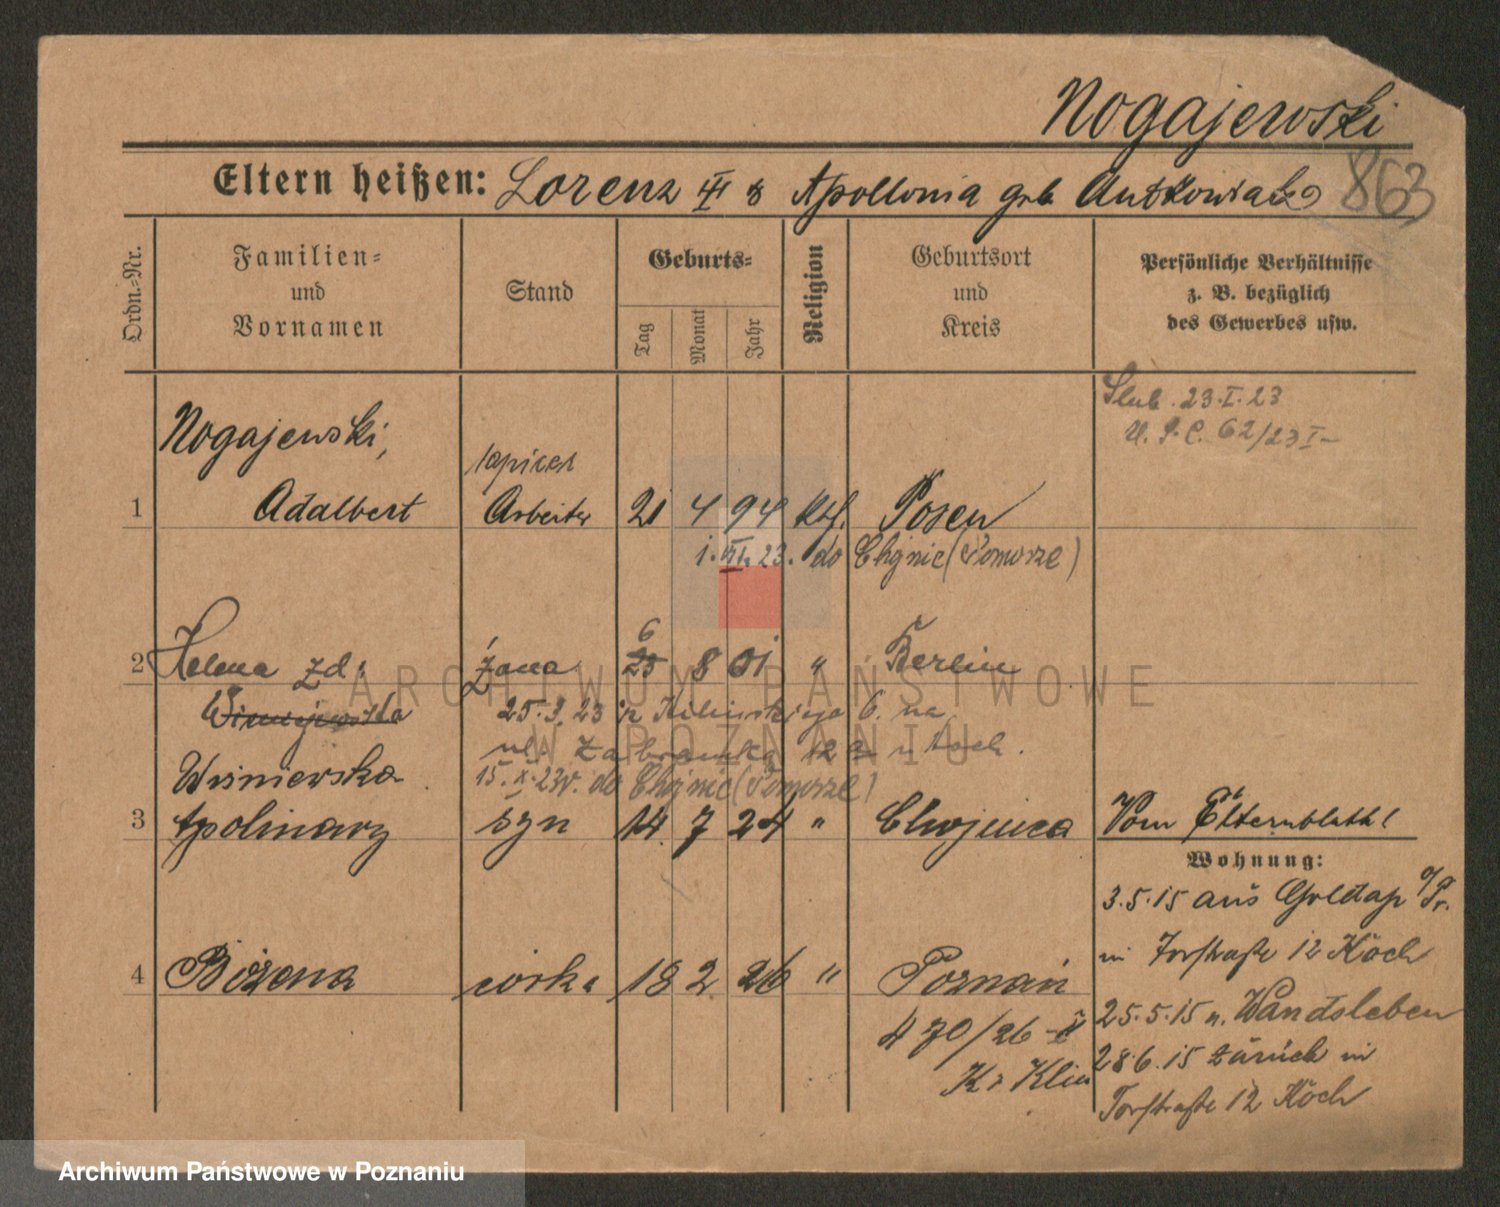 Nogajewski
Eltern heißen: Lorenz III & Apollonia geb Antkowiak 863
Ordn.-Nr.
Familien-
und
Vornamen
Stand
Geburts-
Tag
Monat
Jahr
Religion
Geburtsort
und
Kreis
Persönliche Verhältnisse
z. B. bezüglich
des Gewerbes usw.
Ślub. 23.I.23
U.S.C. 62/23 I
Nogajewski,
tapicer
1 Adalbert Arbeiter 21 4 94 kth. Posen
1.VI.23. do Chojnic (Pomorze)
6
2 Helena zd: żona 25 8 01 " Berlin
25.3.23 Kilińskiego 6. na
ul. Zabramką 12a
Wiśniewska
15.X.23r. do Chojnic (Pomorze)
3 Apolinary syn 14 7 24 " Chojnica Vom Elternblatt
Wohnung:
3.5.15 aus Goldap O/Pr.
in Torstraße 12 Koch
4 Bożena córka 18 2 26 " Poznań
25.5.15 n. Wandsleben
470/26
28.6.15 zurück in
Torstraße 12 Koch
ARCHIWUM PAŃSTWOWE
W POZNANIU
Archiwum Państwowe w Poznaniu